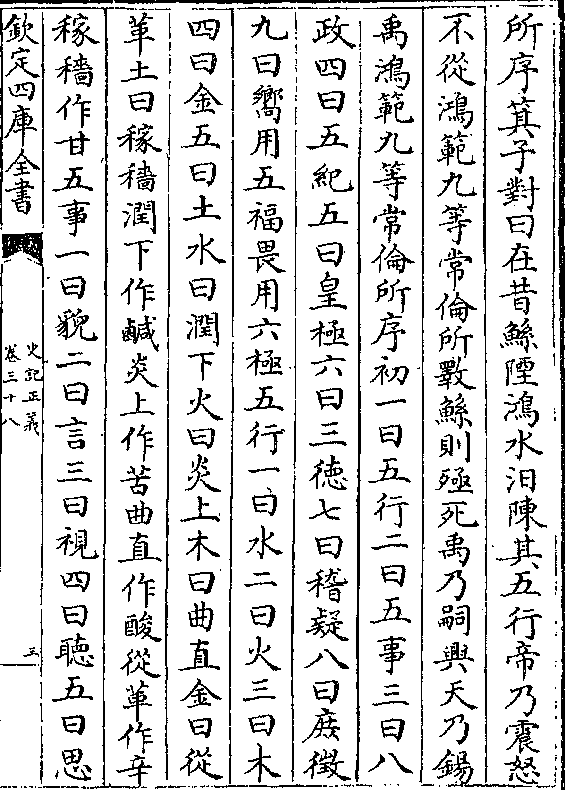 所序箕子對曰在昔鯀陻鴻水汨陳其五行帝乃震怒
不從鴻範九等常倫所斁鯀則殛死禹乃嗣興天乃錫
禹鴻範九等常倫所序初一曰五行二曰五事三曰八
政四曰五紀五曰皇極六曰三德七曰稽疑八曰庶徵
九曰嚮用五福畏用六極五行一曰水二曰火三曰木
四曰金五曰土水曰潤下火曰炎上木曰曲直金曰從
革土曰稼穡潤下作鹹炎上作苦曲直作酸從革作辛
稼穡作甘五事一曰貌二曰言三曰視四曰聽五曰思
欽定四庫全書
史記正義
卷三十八
三